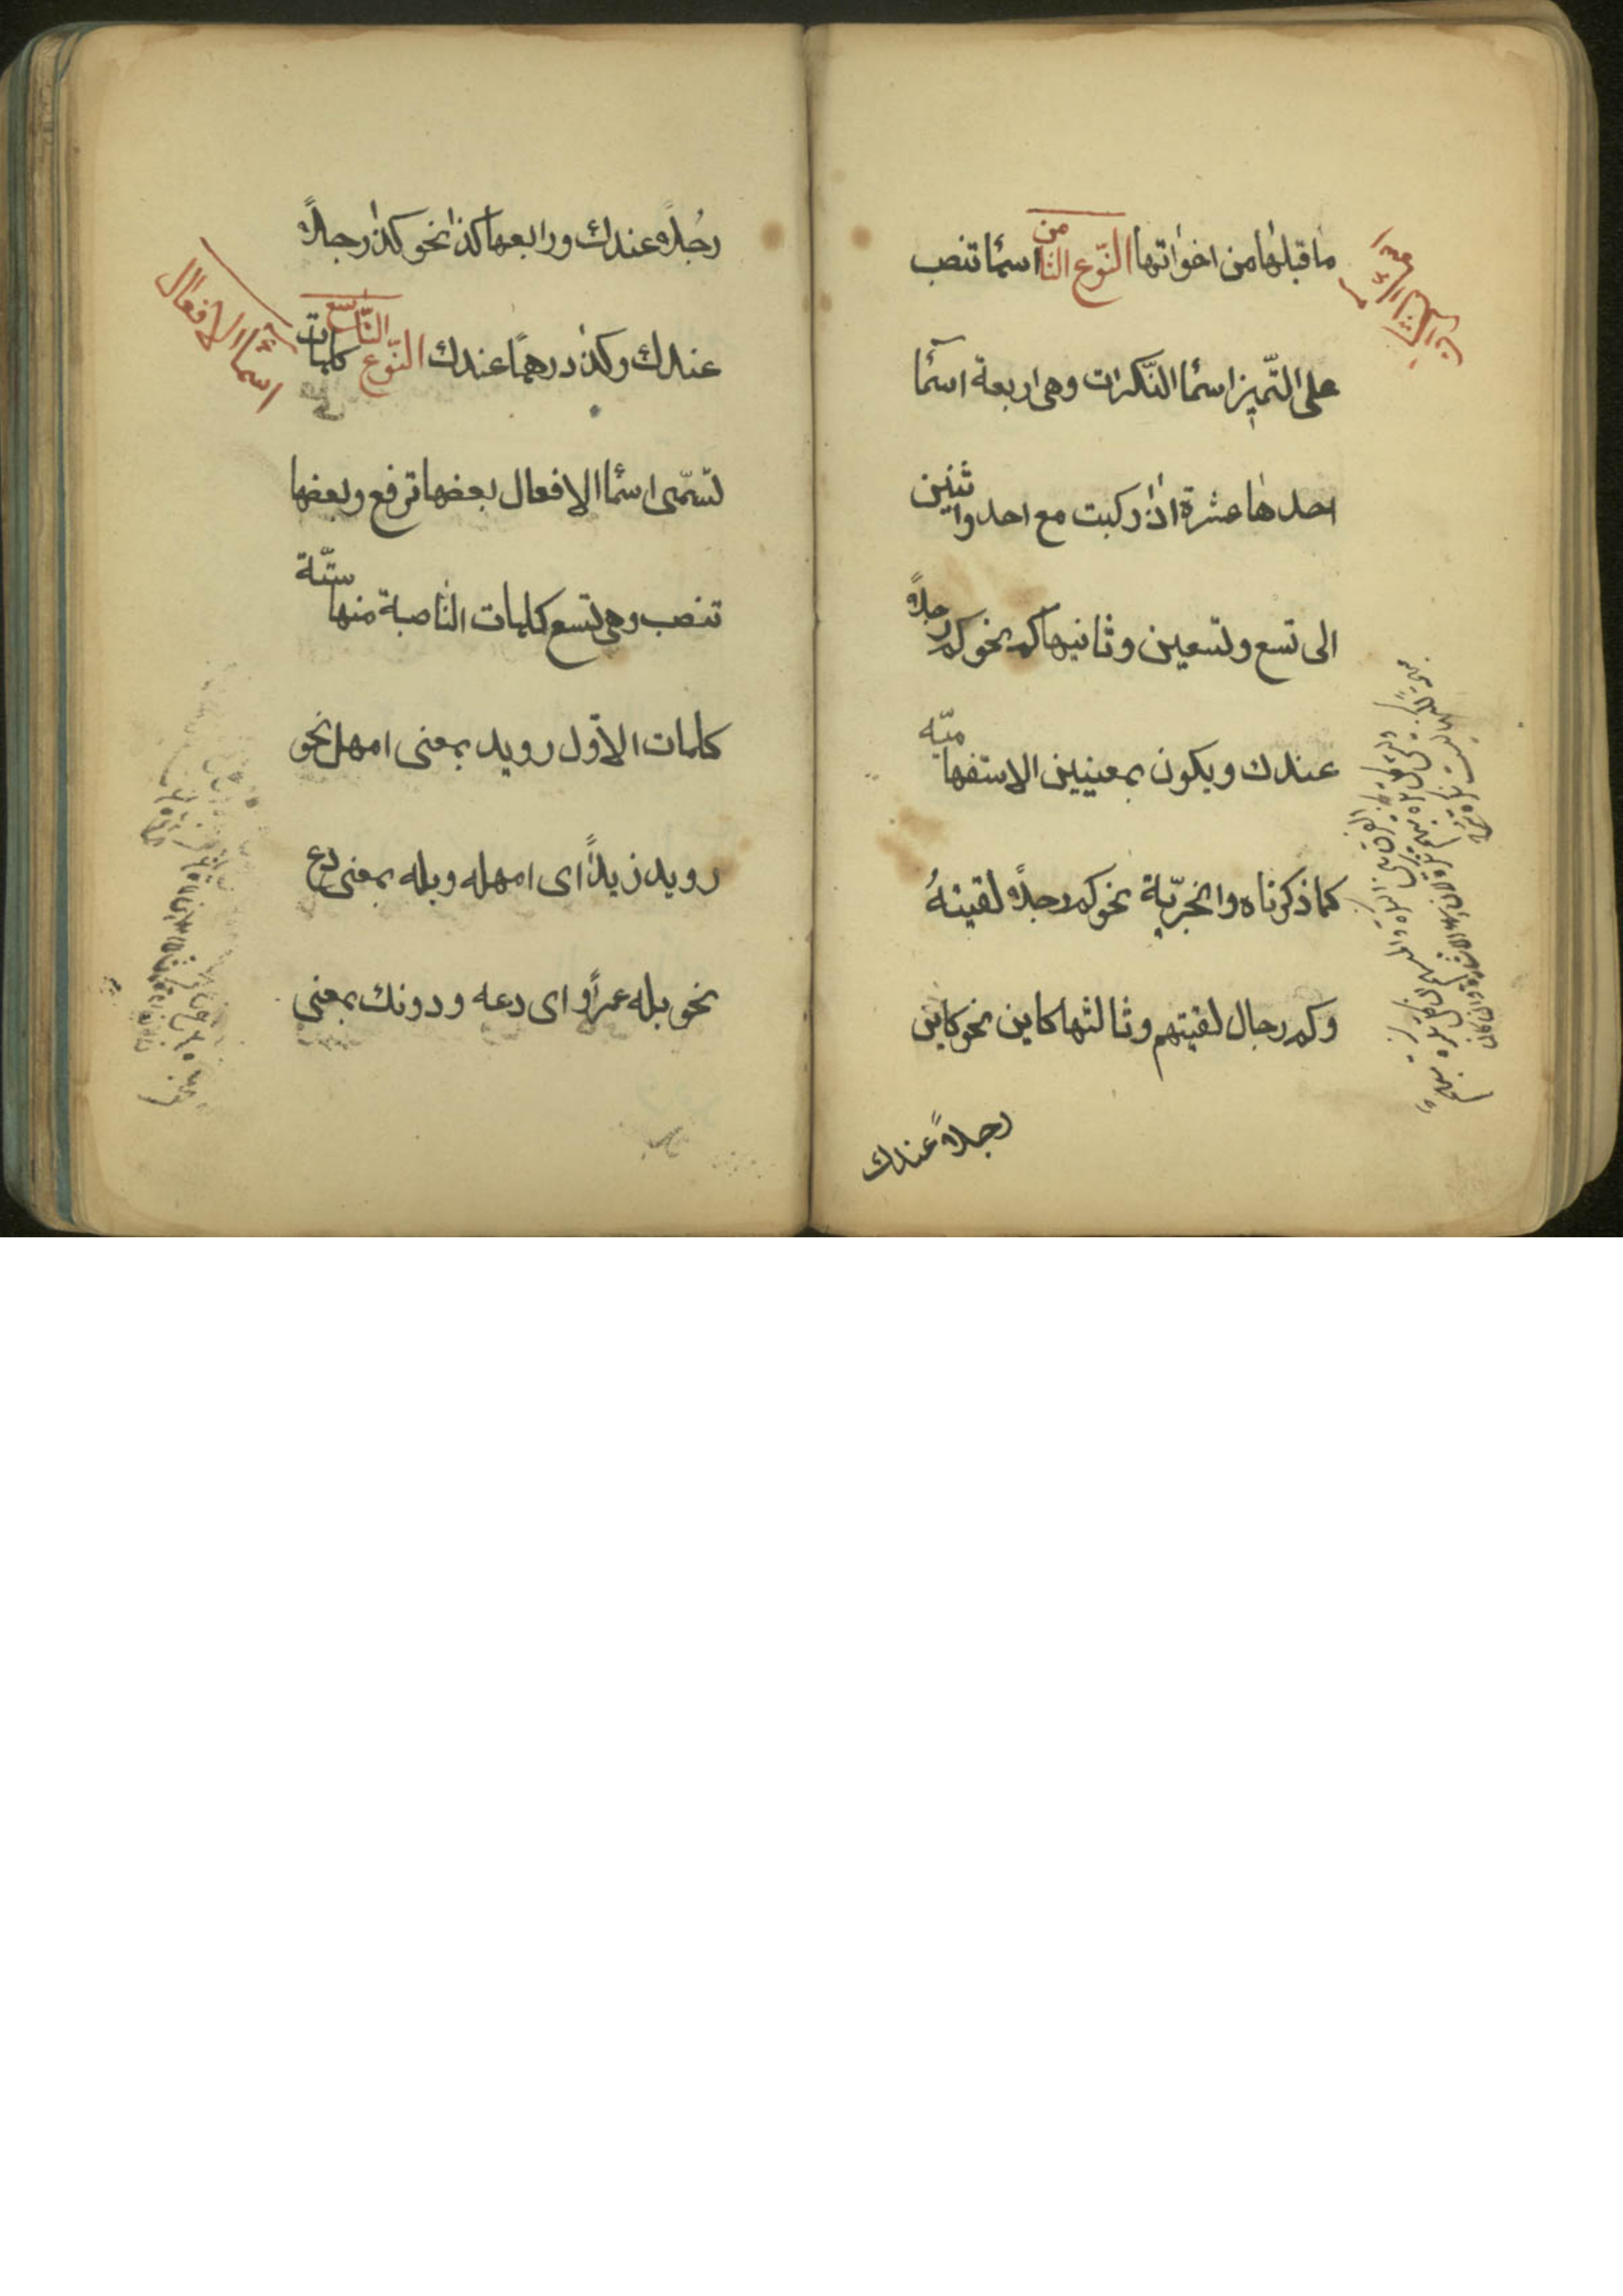 ما قبلها من اخواتها النّوع الثّامن اسما تنصب
على التّميز اسما النّكرات وهى اربعة اسما
احدها عشرة اذا ركبت مع احد واثنين
الى تسع وتسعين وثانيها كم نحو كم رجلاً
عندك ويكون بمعنيين الاستفهاميّه
كما ذكرناه والخبريّة نحو كم رجلاً لقيتهُ
وكم رجال لقيتهم وثالثها كاين نحو كاين
رجلاً عندك
رجُلاً عندك ورابعها كذا نحو كذا رجلاً
عندك وكذا درهمًا عندك النّوع التّاسع كلمات
تسمّى اسما الافعال بعضها ترفع وبعضها
تنصب وهى تسع كلمات النّاصبة منها ستّة
كلمات الاوّل رويد بمعنى امهل نحو
رويد زيداً اى امهله وبله بمعنى دع
نحو بله عمراً اى دعه ودونك بمعنى
اسماء الافعال